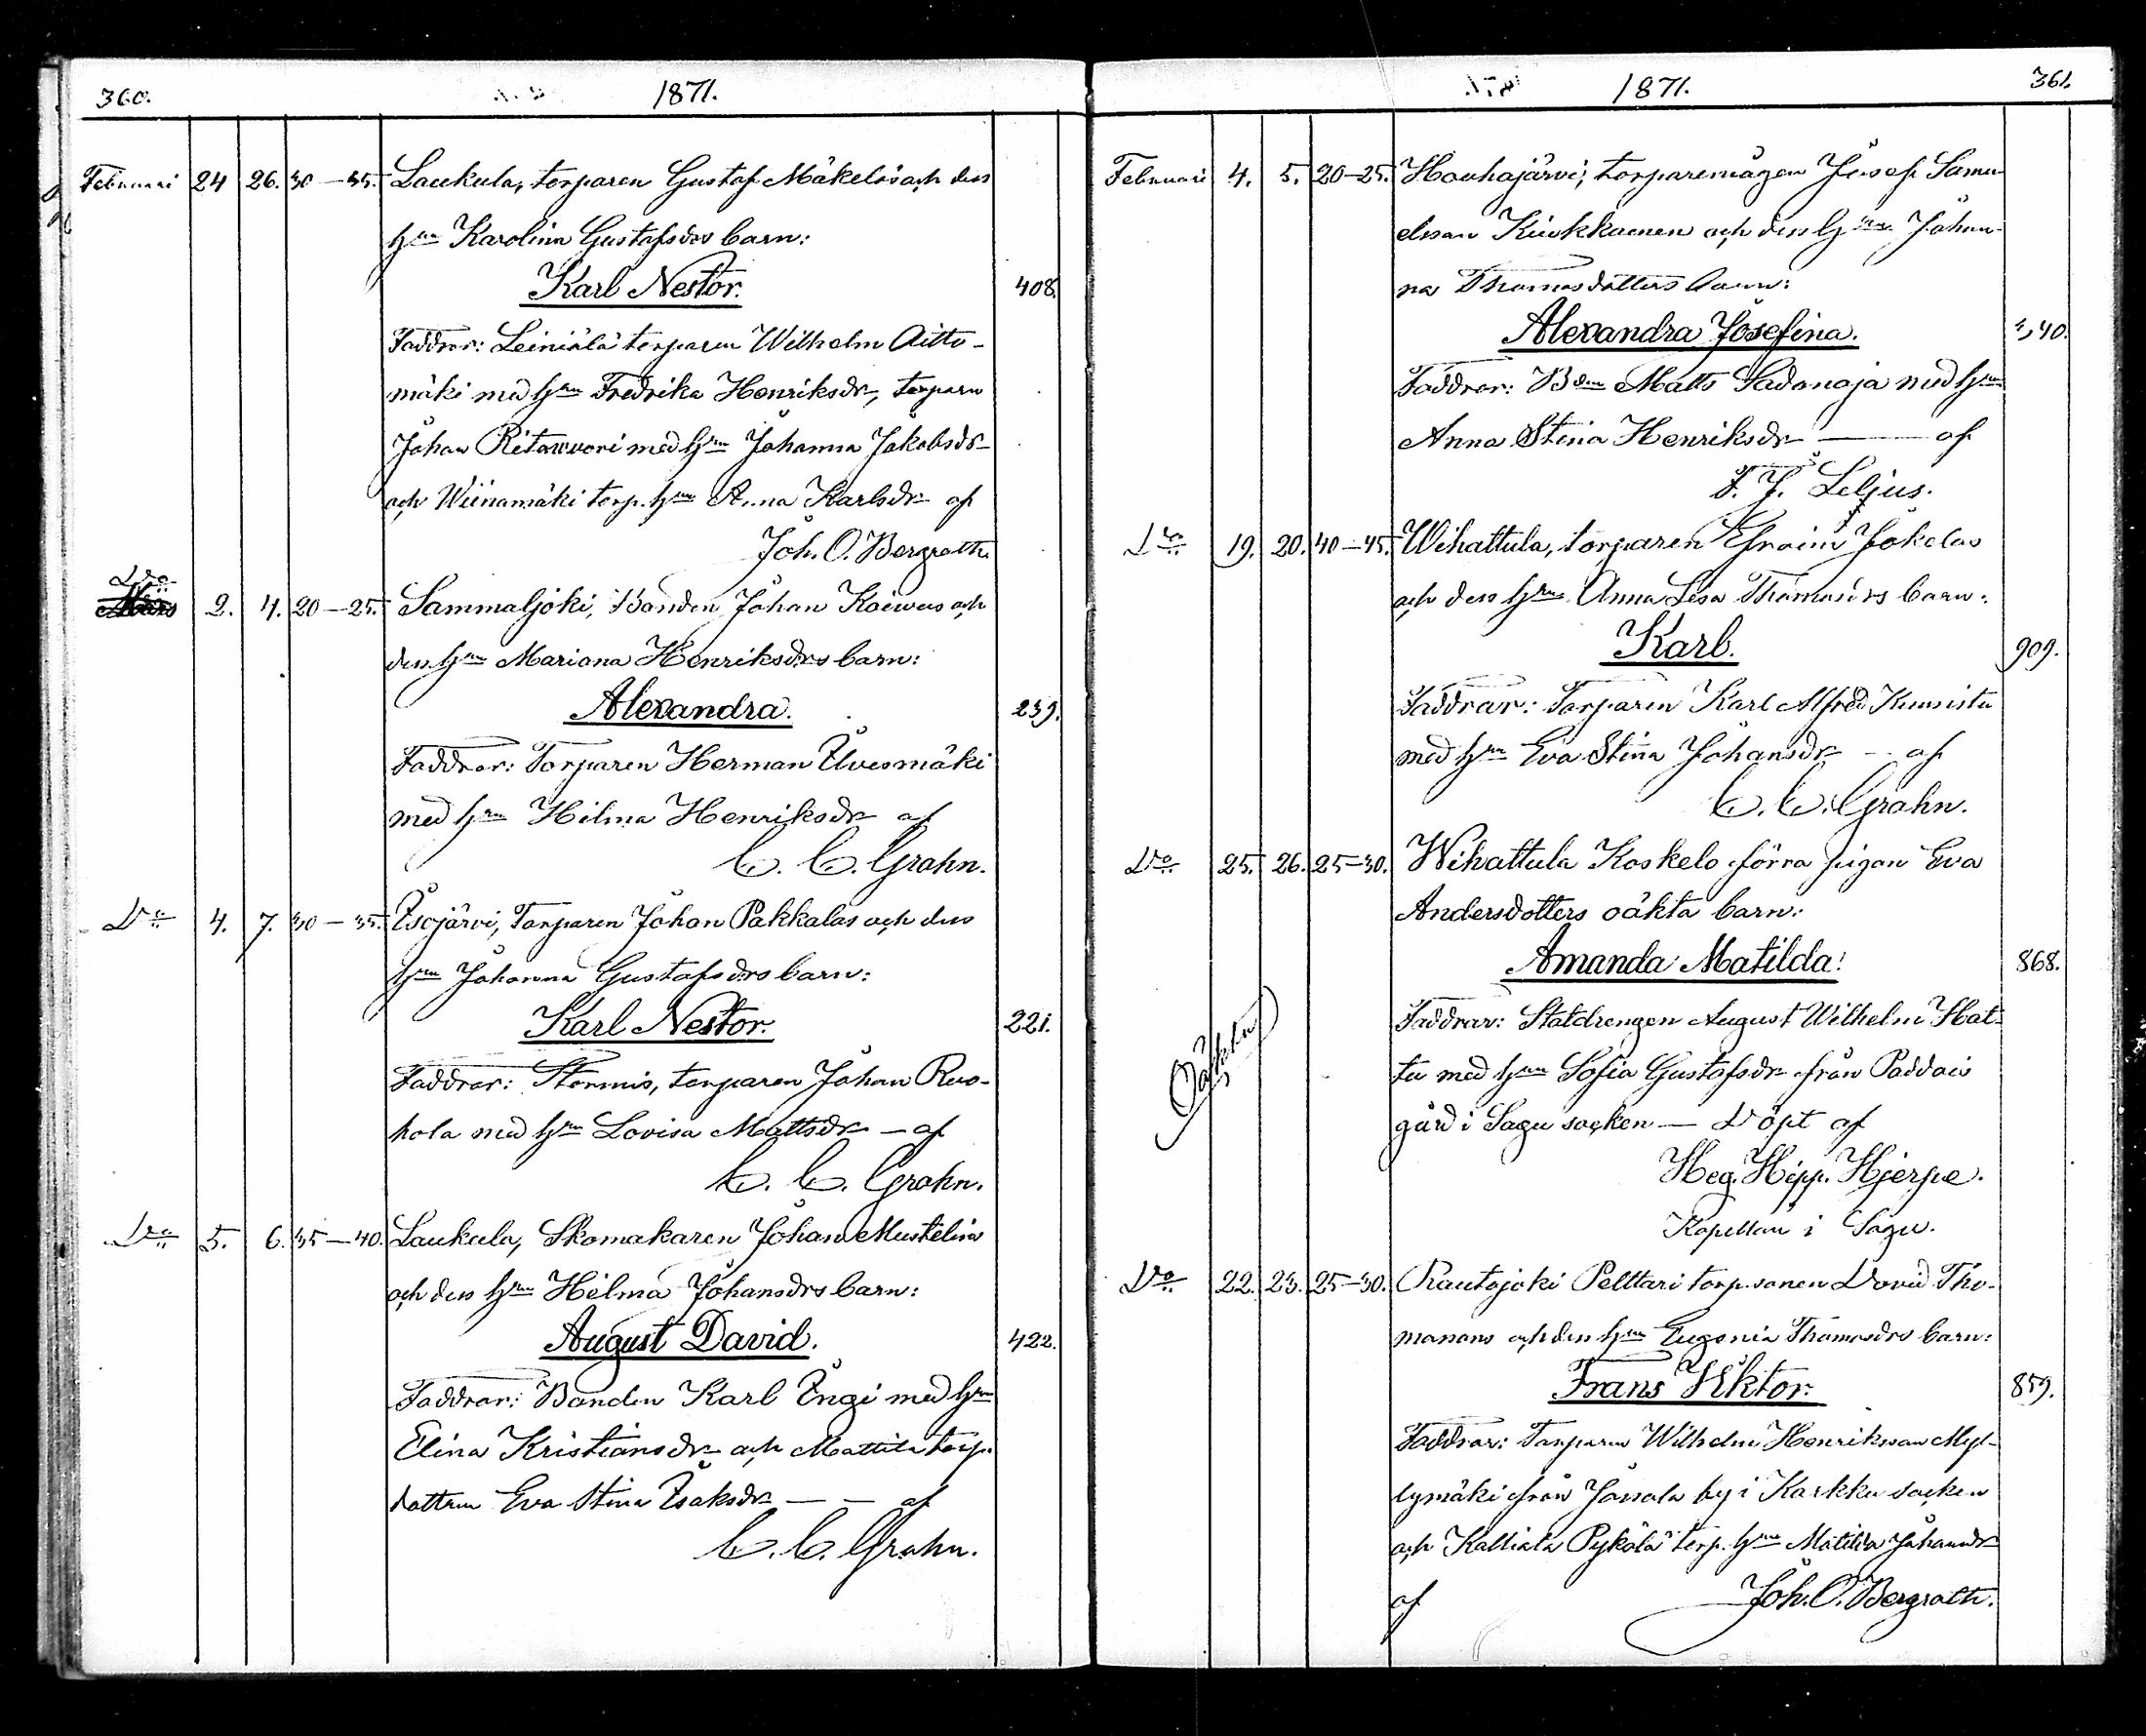 360.
1871.
Februari 24 26. 30–35. Laukula, torparen Gustaf Mäkeläs och dess
hru Karolina Gustafsdrs barn:
Karl Nestor. 408.
Faddrar: Leiniälä torparen Wilhelm Aitto-
mäki med hru Fredrika Henriksdr, torparn
Johan Ritawuori med hru Johanna Jakobsdr
och Wiinamäki torp. hru Anna Karlsdr af
Joh. O. Bergroth.
Do
Mars 2. 4. 20–25. Sammaljoki, Bonden Johan Koiwus och
dess hru Mariana Henriksdrs barn:
Alexandra. 239.
Faddrar: Torparen Herman Uvesmäki
med hru Hilma Henriksdr af
C. C. Grahn.
Do 4. 7. 30–35. Isojärvi, Torparen Johan Pakkalas och dess
hru Johanna Gustafsdrs barn:
Karl Nestor. 221.
Faddrar: Stormis, torparen Johan Ruo-
hola med hru Lovisa Mattsdr – af
C. C. Grahn.
Do 5. 6. 35–40. Laukula, Skomakaren Johan Mustelins
och dess hru Hilma Johansdrs barn:
August David. 422.
Faddrar: Bonden Karl Ängi med hru
Elina Kristiansdr och Mattila torp.
dottren Eva Stina Isaksdr – – af
C. C. Grahn.
1871.
361.
Februari 4. 5. 20–25. Houhajärvi, torparemågen Josef Samu-
elsson Kiukkaenen och dess hru Johan-
na Thomasdotters barn:
Alexandra Josefina. 40.
Faddrar: Bdn Matts Sadanoja med hru
Anna Stina Henriksdr — af
F. F. Leljus.
Do 19. 20. 40–45. Wihattula, torparen Efraim Jokelas
och dess hru Anna Lisa Thomasdrs barn:
Karl. 909.
Faddrar: Torparen Karl Alfred Kuusisto
med hru Eva Stina Johansdr – af
C. C. Grahn.
Do 25. 26. 25–30. Wihattula Koskelo förra pigan Eva
Andersdotters oäkta barn:
Amanda Matilda. 868.
Oäkta
Faddrar: Statdrengen August Wilhelm Hat-
tu med hru Sofia Gustafsdr från Paddais
gård i Sagu socken — Döpt af
Heg. Hipp. Hjerpe.
Kapellan i Sagu.
Do 22. 23. 25–30. Rautajoki Pelttari torp.sonen David Tho-
massons och dess hru Eugenia Thomasdrs barn:
Frans Viktor. 859.
Faddrar: Torparen Wilhelm Henriksson Myl-
lymäki från Jossala by i Karkku socken
och Kalliala Pykälä torp. hru Matilda Johansdr
af Joh. O. Bergroth.